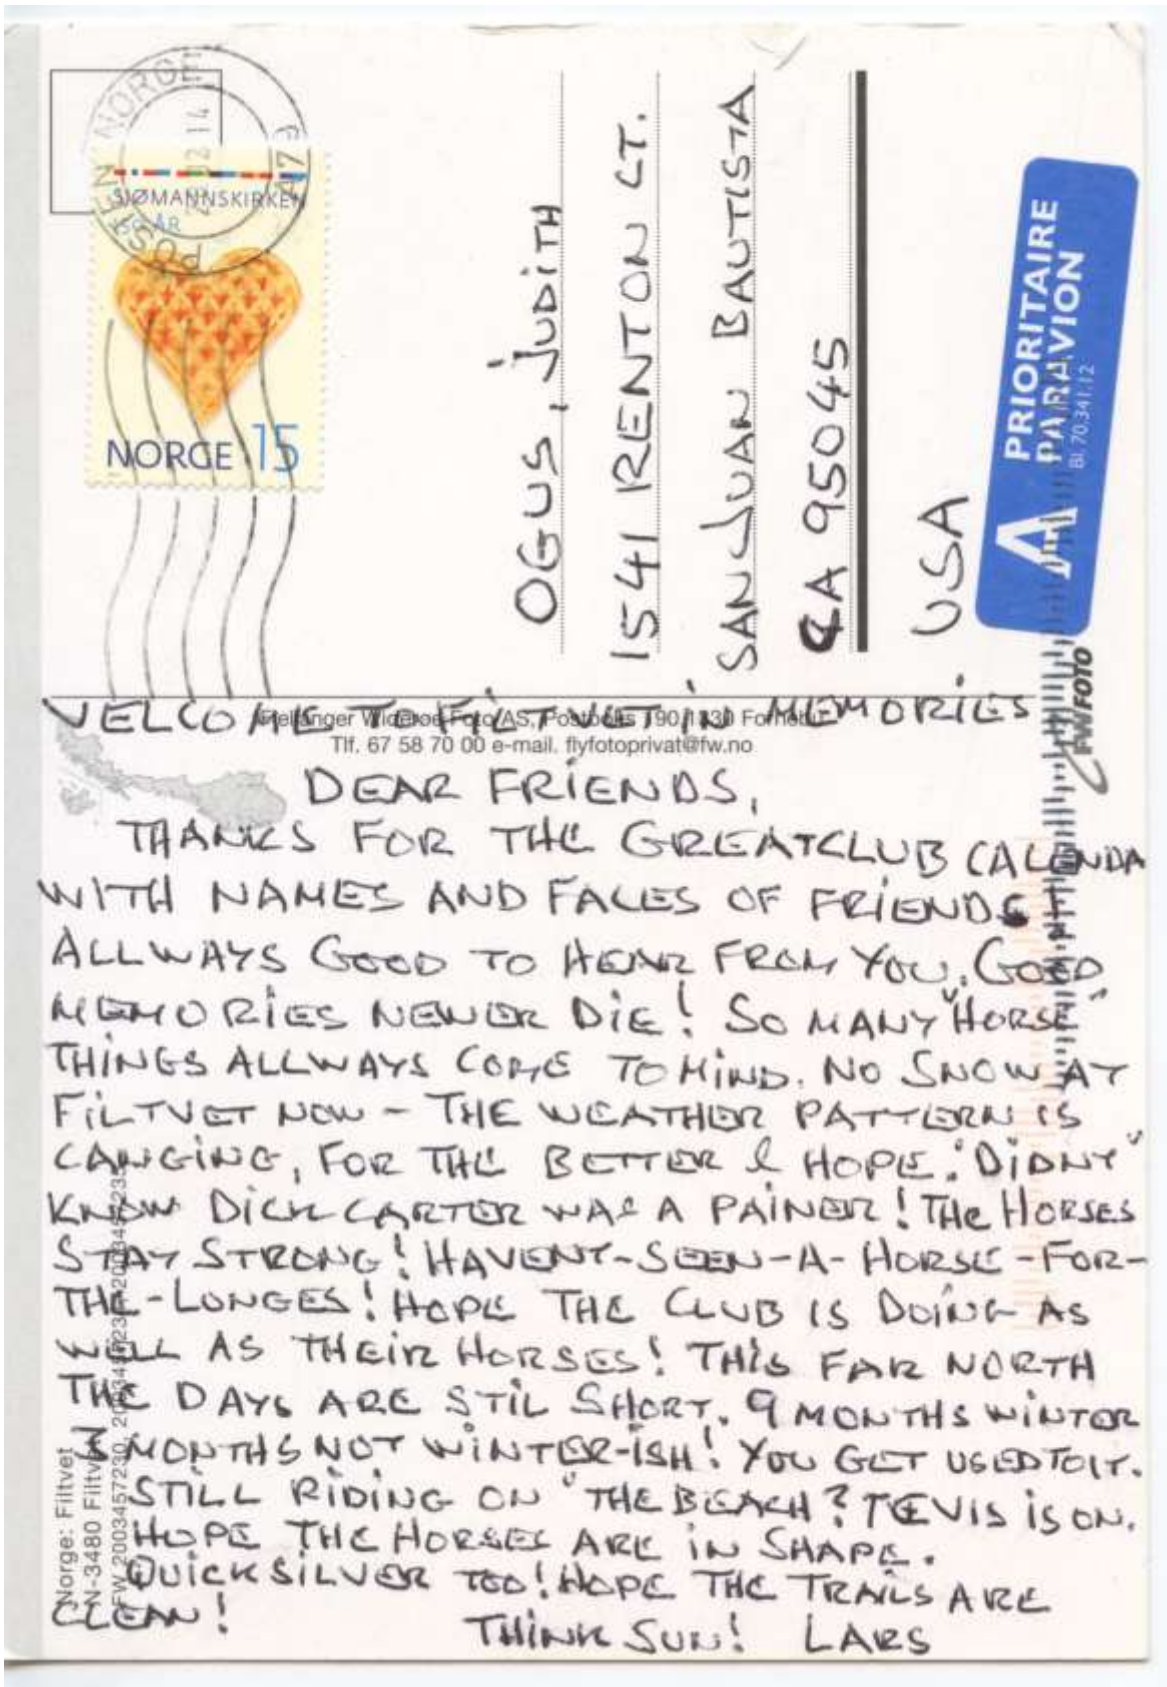 POSTEN NORGE
SJØMANNSKIRKEN
150 ÅR
NORGE 15
OGUS, JUDITH
1541 RENTON CT.
SAN JUAN BAUTISTA
CA 95045
USA
A PRIORITAIRE
PAR AVION
Bl. 70.341.12
FWFOTO
VELCOME TO FILTVET IN MEMORIES
Fjellanger Widerøe Foto AS, Postboks 190, 1330 Fornebu
Tlf. 67 58 70 00 e-mail. flyfotoprivat@fw.no
DEAR FRIENDS,
THANKS FOR THE GREAT CLUB CALENDA
WITH NAMES AND FACES OF FRIENDS!
ALLWAYS GOOD TO HEAR FROM YOU. GOOD
MEMORIES NEWER DIE! SO MANY "HORSE"
THINGS ALLWAYS COME TO MIND. NO SNOW AT
FILTVET NOW - THE WEATHER PATTERN IS
CANGING, FOR THE BETTER I HOPE. "DIDNT"
KNOW DICK CARTER WAS A PAINER! THE HORSES
STAY STRONG! HAVENT-SEEN-A-HORSE-FOR-
THE-LONGES! HOPE THE CLUB IS DOING AS
WELL AS THEIR HORSES! THIS FAR NORTH
THE DAYS ARE STIL SHORT. 9 MONTHS WINTER
3 MONTHS NOT WINTER-ISH! YOU GET USED TO IT.
STILL RIDING ON "THE BEACH? TEVIS IS ON.
HOPE THE HORSES ARE IN SHAPE.
QUICKSILVER TOO! HOPE THE TRAILS ARE
CLEAN!
THINK SUN! LARS
Norge: Filtvet
N-3480 Filtvet
FW 2003457230,